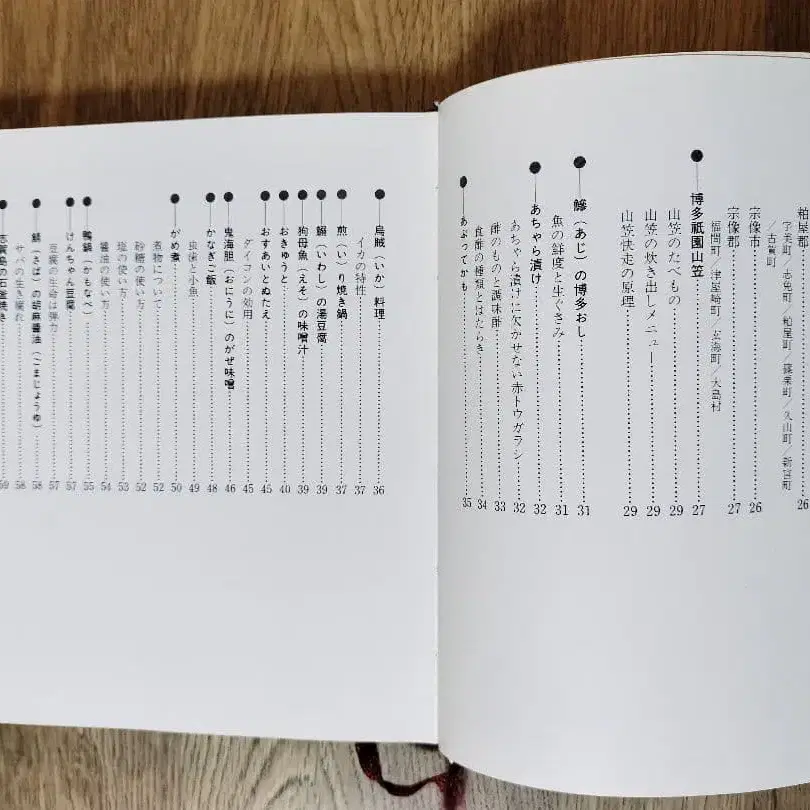 粕屋郡……26
宇美町／志免町／粕屋町／篠栗町／久山町／新宮町
／古賀町
宗像市……26
宗像郡……27
福間町／津屋崎町／玄海町／大島村
●博多祇園山笠……27
山笠のたべもの……29
山笠の炊き出しメニュー……29
山笠快走の原理……29
●鯵（あじ）の博多おし……31
魚の鮮度と生ぐさみ……31
●あちゃら漬け……32
あちゃら漬けに欠かせない赤トウガラシ……32
酢のものと調味酢……33
食酢の種類とはたらき……34
●あぶってかも……35
●烏賊（いか）料理……36
イカの特性……37
●煎（い）り焼き鍋……37
●鰯（いわし）の湯豆腐……39
●狗母魚（えそ）の味噌汁……39
●おきゅうと……40
●おすあいとぬたえ……45
ダイコンの効用……45
●鬼海胆（おにうに）のがぜ味噌……46
●かなぎご飯……48
虫歯と小魚……49
●がめ煮……50
煮物について……52
砂糖の使い方……52
塩の使い方……53
醤油の使い方……54
●鴨鍋（かもなべ）……55
●けんちゃん豆腐……57
豆腐の生命は弾力……57
●鯖（さば）の胡麻醤油（ごまじょうゆ）……58
サバの生き腐れ……58
●志賀島の石釜焼き……59